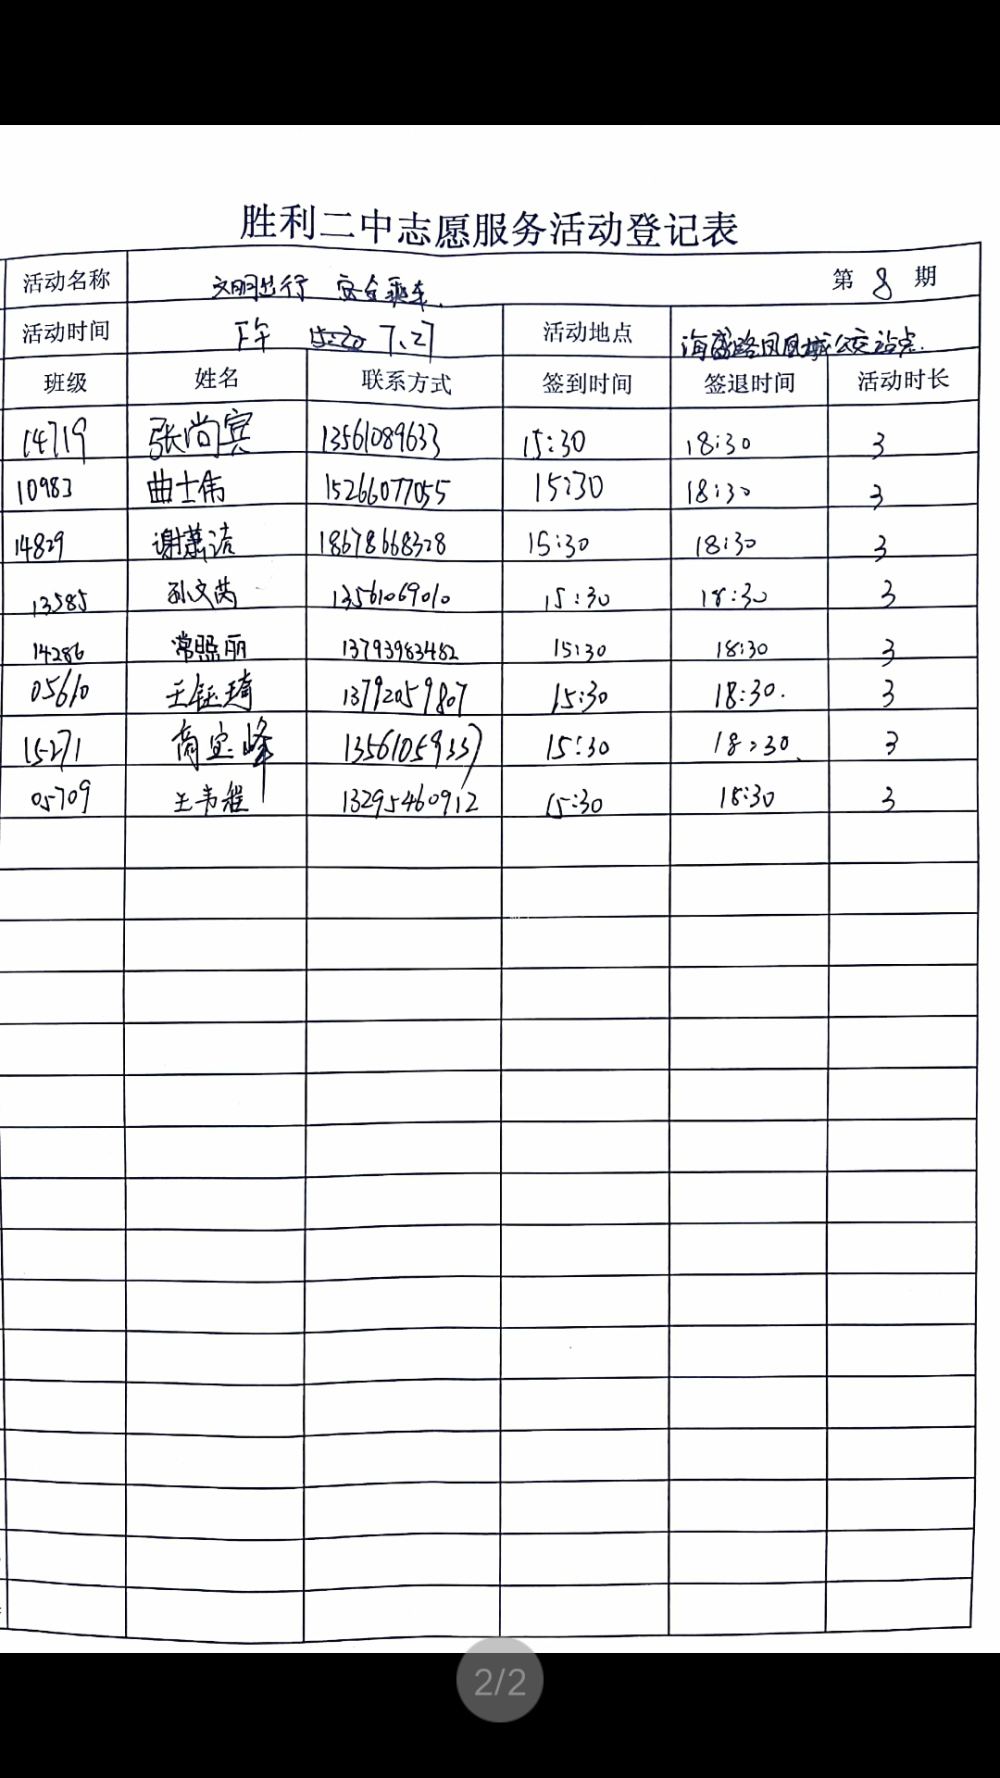 胜利二中志愿服务活动登记表
活动名称 文明出行 安全乘车. 第 8 期
活动时间 下午 15:20 7.27 活动地点 海盛路凤凰城公交站点.
班级 姓名 联系方式 签到时间 签退时间 活动时长
14719 张尚宾 13561089633 15:30 18:30 3
10983 曲士伟 15266077055 15:30 18:30 3
14829 谢萧洁 18678668328 15:30 18:30 3
13585 孙文芮 13561069010 15:30 18:30 3
14286 常照丽 13793983482 15:30 18:30 3
05610 王钰琦 13792059807 15:30 18:30. 3
15271 商宝峰 13561059337 15:30 18:30 3
05709 王韦程 13295460912 15:30 18:30 3
2/2